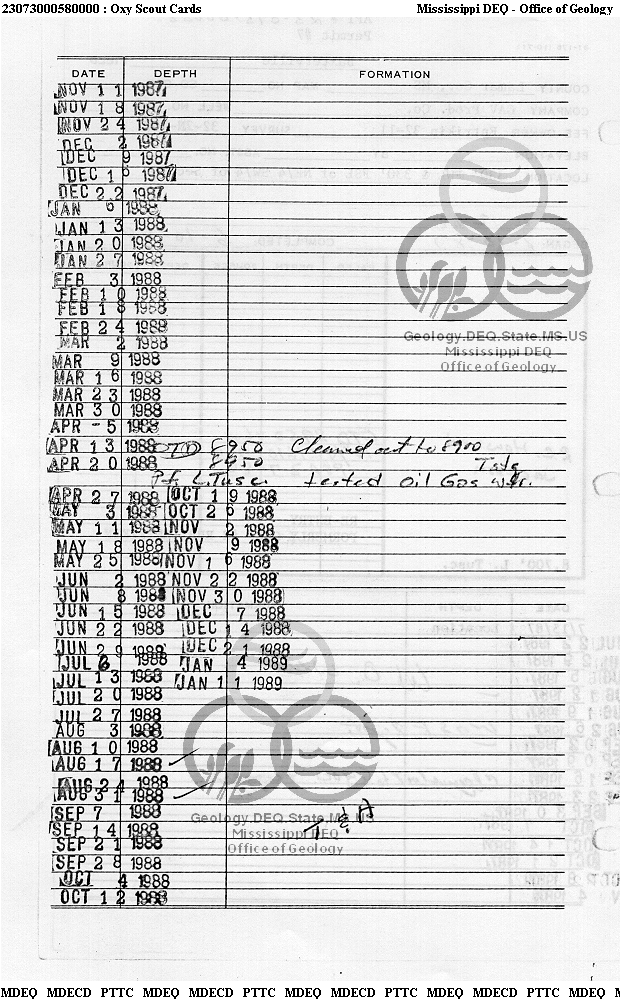 23073000580000 : Oxy Scout Cards Mississippi DEQ - Office of Geology
DATE DEPTH FORMATION
NOV 11 1987
NOV 18 1987
NOV 24 1987
DEC 2 1987
DEC 9 1987
DEC 16 1987
DEC 22 1987
JAN 6 1988
JAN 13 1988
JAN 20 1988
JAN 27 1988
FEB 3 1988
FEB 10 1988
FEB 18 1988
FEB 24 1988
MAR 2 1988
Geology.DEQ.State.MS.US
Mississippi DEQ
Office of Geology
MAR 9 1988
MAR 16 1988
MAR 23 1988
MAR 30 1988
APR -5 1988
APR 13 1988 OTD 8950 Cleaned out to 8900
APR 20 1988 8950 Tstg
Pf L.Tusc. tested Oil Gas wtr.
APR 27 1988 OCT 19 1988
MAY 3 1988 OCT 26 1988
MAY 11 1988 NOV 2 1988
MAY 18 1988 NOV 9 1988
MAY 25 1988 NOV 16 1988
JUN 2 1988 NOV 22 1988
JUN 8 1988 NOV 30 1988
JUN 15 1988 DEC 7 1988
JUN 22 1988 DEC 14 1988
JUN 29 1988 DEC 21 1988
JUL 6 1988 JAN 4 1989
JUL 13 1988 JAN 11 1989
JUL 20 1988
JUL 27 1988
AUG 3 1988
AUG 10 1988
AUG 17 1988
AUG 24 1988
AUG 31 1988
SEP 7 1988
SEP 14 1988
SEP 21 1988
SEP 28 1988
OCT 4 1988
OCT 12 1988
Geology.DEQ.State.MS.US
Mississippi DEQ
Office of Geology
MDEQ MDECD PTTC MDEQ MDECD PTTC MDEQ MDECD PTTC MDEQ MDECD PTTC MDEQ M